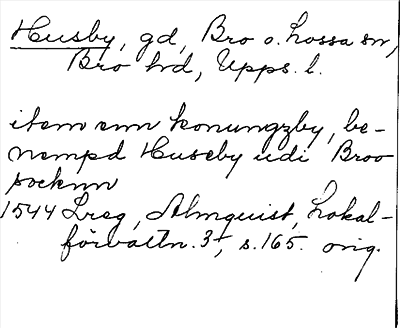 Husby, gd, Bro o. Lossa sn,
Bro hd, Upps. l.
item enn konungzby, be-
nempd Huseby udi Broo
socknn
1544 Lreg, Almquist, Lokal-
förvaltn. 3, s. 165. orig.